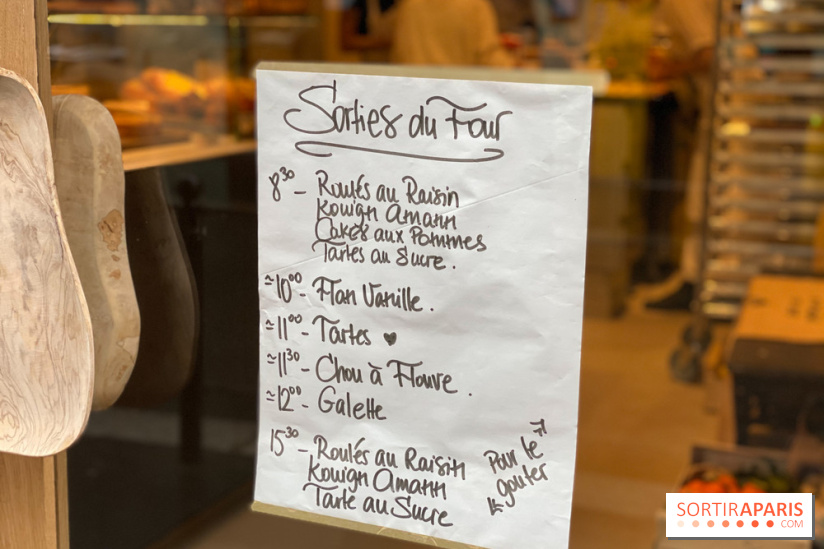 Sorties du Four
8³⁰ - Roulés au Raisin
Kouign Amann
Cakes aux Pommes
Tartes au Sucre.
≃10⁰⁰ - Flan Vanille.
≃11⁰⁰ - Tartes ♥
≃11³⁰ - Chou à Flouve.
≃12⁰⁰ - Galette
15³⁰ - Roulés au Raisin
Kouign Amann
Tarte au Sucre
Pour le
goûter
SORTIRAPARIS
.COM